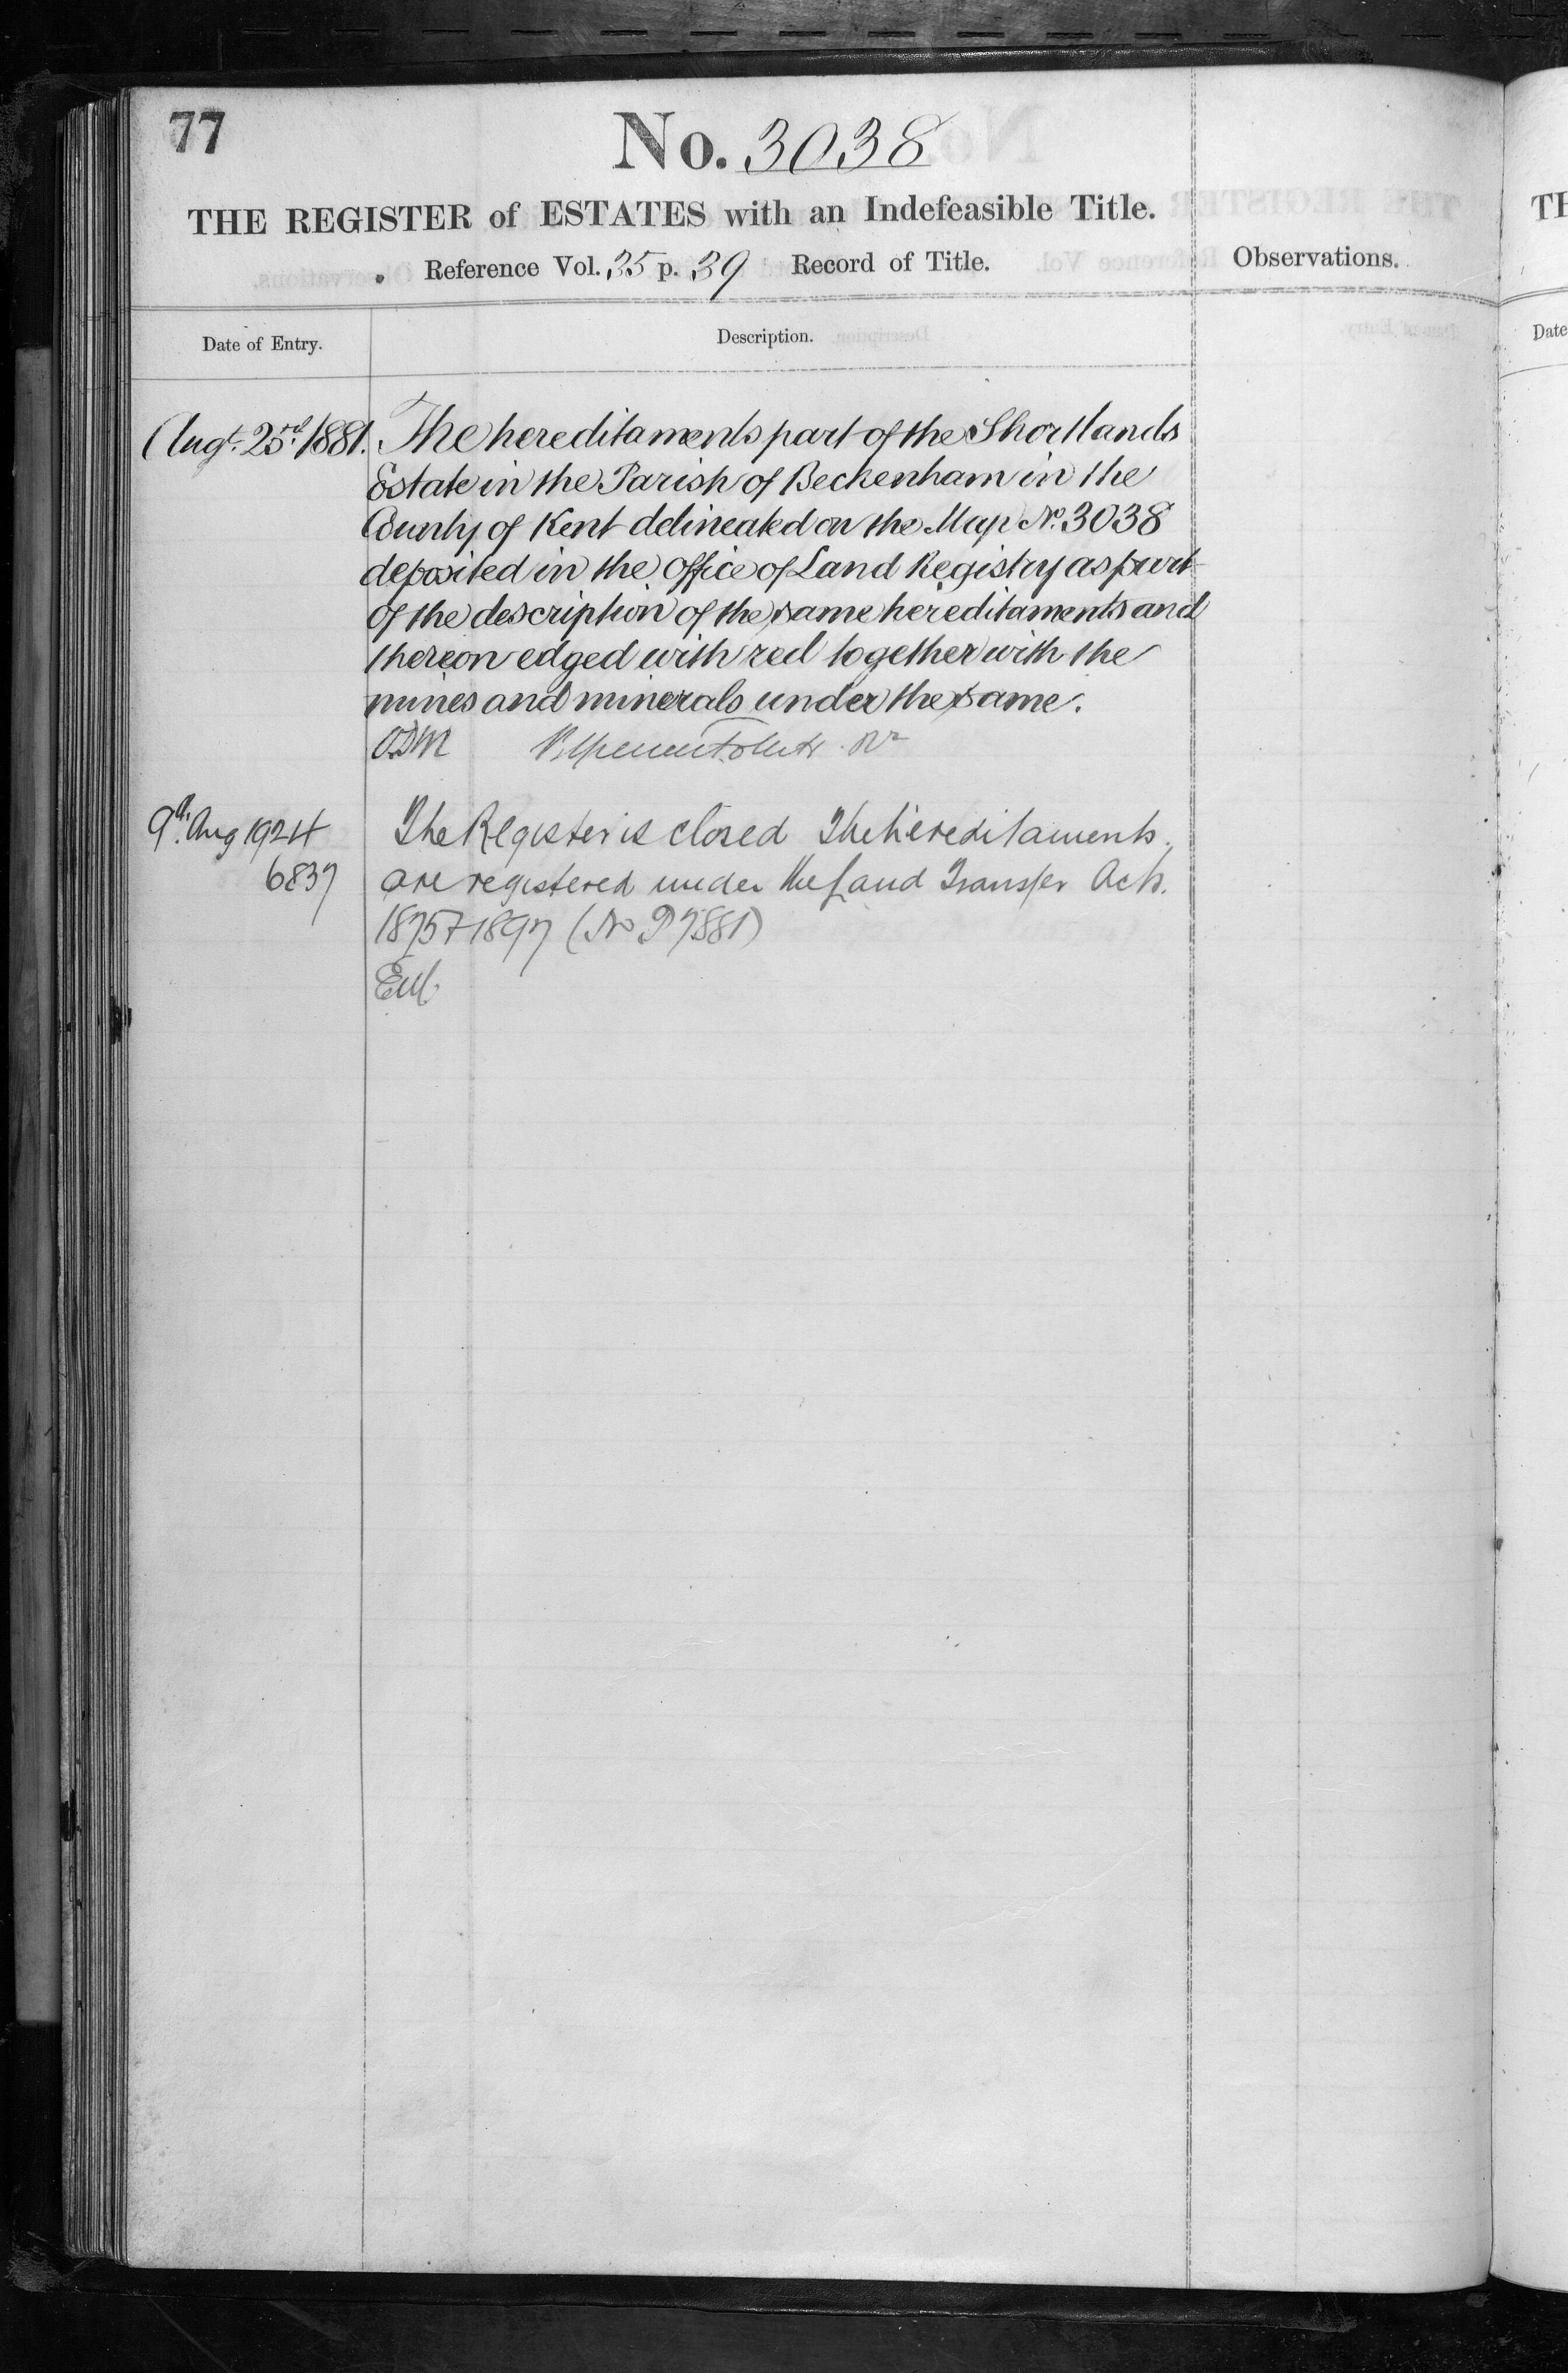 77
No. 3038
THE REGISTER of ESTATES with an Indefeasible Title.
Reference Vol. 35 p. 39 Record of Title.
Observations.
Date of Entry.
Description.
Augt. 23rd. 1881. The hereditaments part of the Shortlands
Estate in the Parish of Beckenham in the
County of Kent delineated on the Map No. 3038
deposited in the Office of Land Registry as part
of the description of the same hereditaments and
thereon edged with red together with the
mines and minerals under the same.
9th. Aug 1924 The Register is closed The hereditaments
6837 are registered under the Land Transfer Acts.
1875 + 1897 (No P 7881)
TH
Date